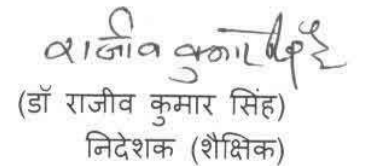 राजीव कुमार सिंह
(डॉ राजीव कुमार सिंह)
निदेशक (शैक्षिक)